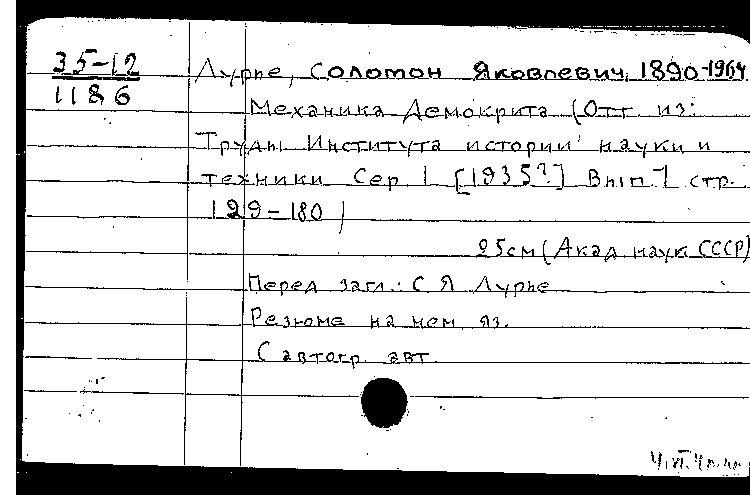 35-12
1186
Лурье, Соломон Яковлевич, 1890-1964
Механика Демокрита (Отт. из:
Труды Института истории науки и
техники Сер. I [1935?] Вып. 7 стр.
129-180)
25см (Акад. наук СССР)
Перед загл.: С Я Лурье
Резюме на нем. яз.
С автогр. авт.